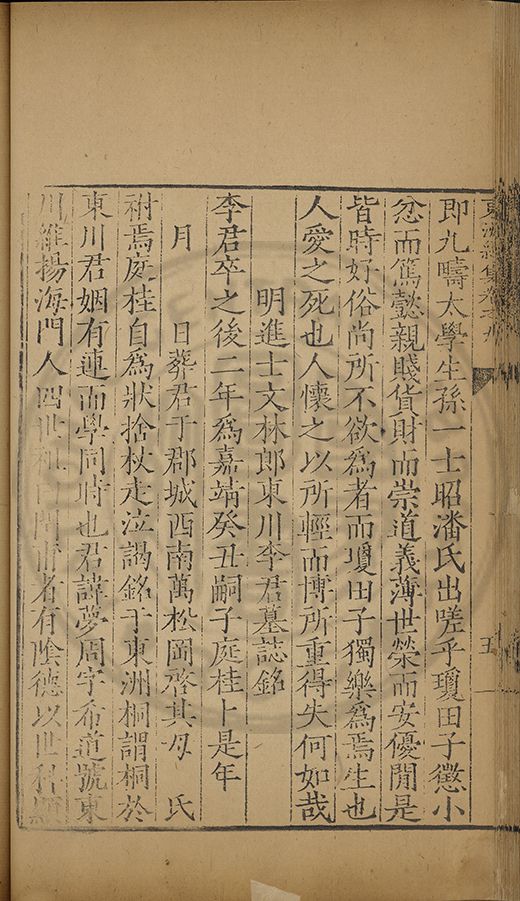 即九疇太學生孫一士昭潘氏出嗟乎瓊田子懲小
忿而篤懿親賤貨財而崇道義薄世榮而安優閒是
皆時好俗尚所不欲為者而瓊田子獨樂為焉生也
人愛之死也人懷之以所輕而博所重得失何如哉
明進士文林郎東川李君墓誌銘
李君卒之後二年為嘉靖癸丑嗣子庭桂卜是年
月 日葬君于郡城西南萬松岡啓其母 氏
祔焉庭桂自為狀捨杖走泣謁銘于東洲桐謂桐於
東川君姻有連而學同時也君諱夢周字希道號東
川維揚海門人四世祖曰 者有陰德以世科
五